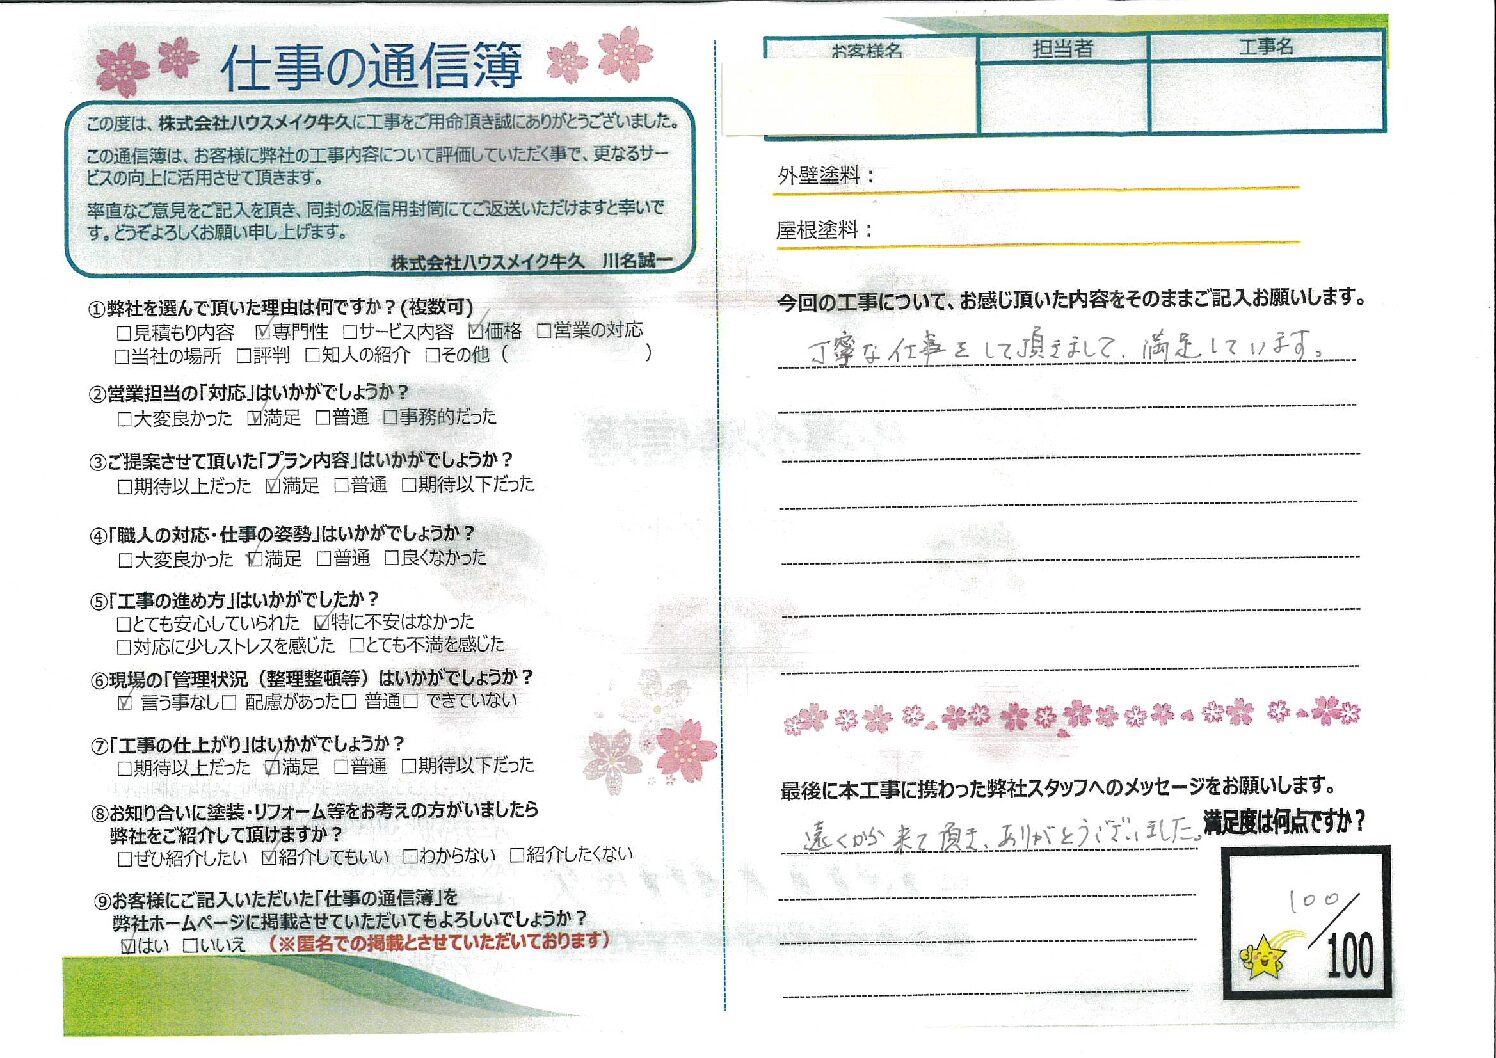 仕事の通信簿
この度は、株式会社ハウスメイク牛久に工事をご用命頂き誠にありがとうございました。
この通信簿は、お客様に弊社の工事内容について評価していただく事で、更なるサー
ビスの向上に活用させて頂きます。
率直なご意見をご記入を頂き、同封の返信用封筒にてご返送いただけますと幸いで
す。どうぞよろしくお願い申し上げます。
株式会社ハウスメイク牛久 川名誠一
①弊社を選んで頂いた理由は何ですか？(複数可)
□見積もり内容 ☑専門性 □サービス内容 ☑価格 □営業の対応
□当社の場所 □評判 □知人の紹介 □その他（ ）
②営業担当の「対応」はいかがでしょうか？
□大変良かった ☑満足 □普通 □事務的だった
③ご提案させて頂いた「プラン内容」はいかがでしょうか？
□期待以上だった ☑満足 □普通 □期待以下だった
④「職人の対応・仕事の姿勢」はいかがでしょうか？
□大変良かった ☑満足 □普通 □良くなかった
⑤「工事の進め方」はいかがでしたか？
□とても安心していられた ☑特に不安はなかった
□対応に少しストレスを感じた □とても不満を感じた
⑥現場の「管理状況（整理整頓等）はいかがでしょうか？
☑ 言う事なし□ 配慮があった□ 普通□ できていない
⑦「工事の仕上がり」はいかがでしょうか？
□期待以上だった ☑満足 □普通 □期待以下だった
⑧お知り合いに塗装・リフォーム等をお考えの方がいましたら
弊社をご紹介して頂けますか？
□ぜひ紹介したい ☑紹介してもいい □わからない □紹介したくない
⑨お客様にご記入いただいた「仕事の通信簿」を
弊社ホームページに掲載させていただいてもよろしいでしょうか？
☑はい □いいえ （※匿名での掲載とさせていただいております）
お客様名 担当者 工事名
外壁塗料：
屋根塗料：
今回の工事について、お感じ頂いた内容をそのままご記入お願いします。
丁寧な仕事をして頂きまして、満足しています。
最後に本工事に携わった弊社スタッフへのメッセージをお願いします。
遠くから来て頂き、ありがとうございました。
満足度は何点ですか？
100/100